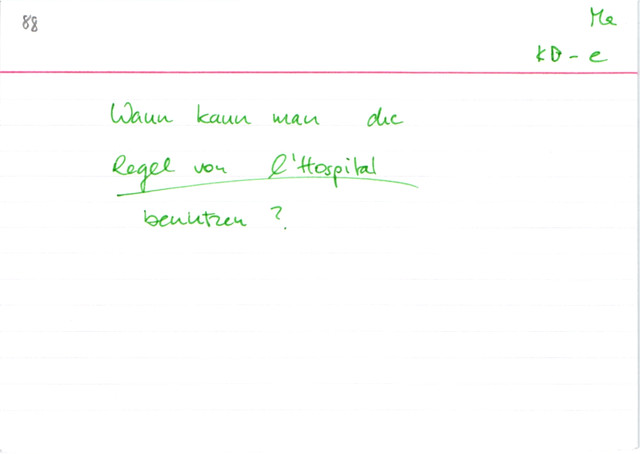 88
Me
KD - e
Wann kann man die
Regel von l'Hospital
benutzen ?